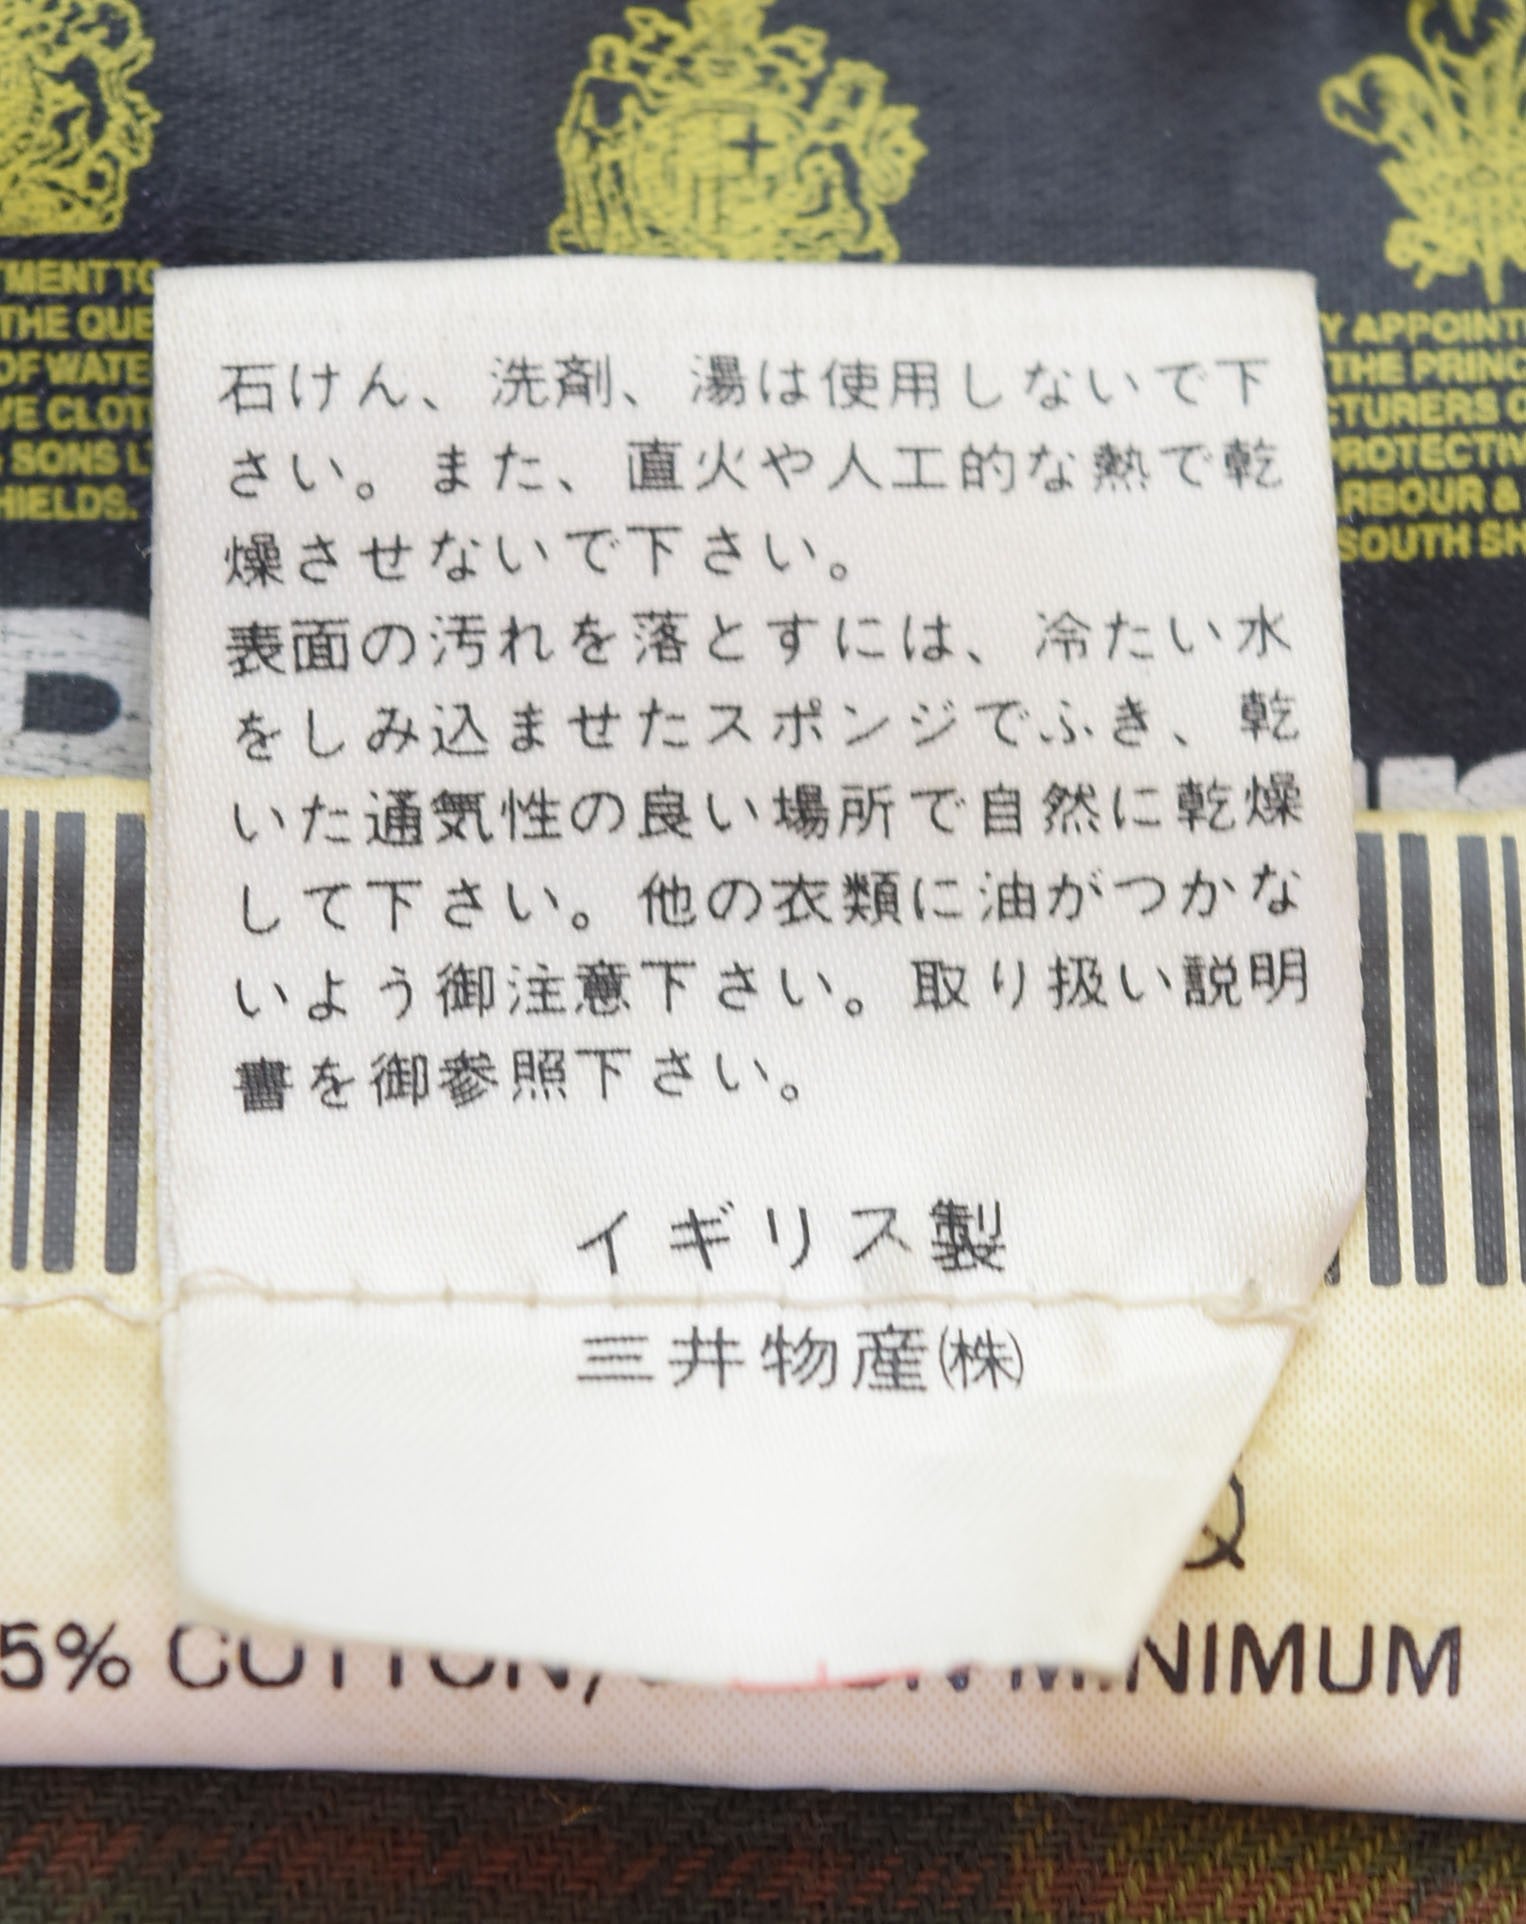 石けん、洗剤、湯は使用しないで下
さい。また、直火や人工的な熱で乾
燥させないで下さい。
表面の汚れを落とすには、冷たい水
をしみ込ませたスポンジでふき、乾
いた通気性の良い場所で自然に乾燥
して下さい。他の衣類に油がつかな
いよう御注意下さい。取り扱い説明
書を御参照下さい。
イギリス製
三井物産㈱
TMENT TO
THE QUE
OF WATE
VE CLOT
SONS L
HIELDS.
Y APPOINT
THE PRINC
CTURERS O
PROTECTIV
ARBOUR &
SOUTH SH
5% COTTON/
MINIMUM